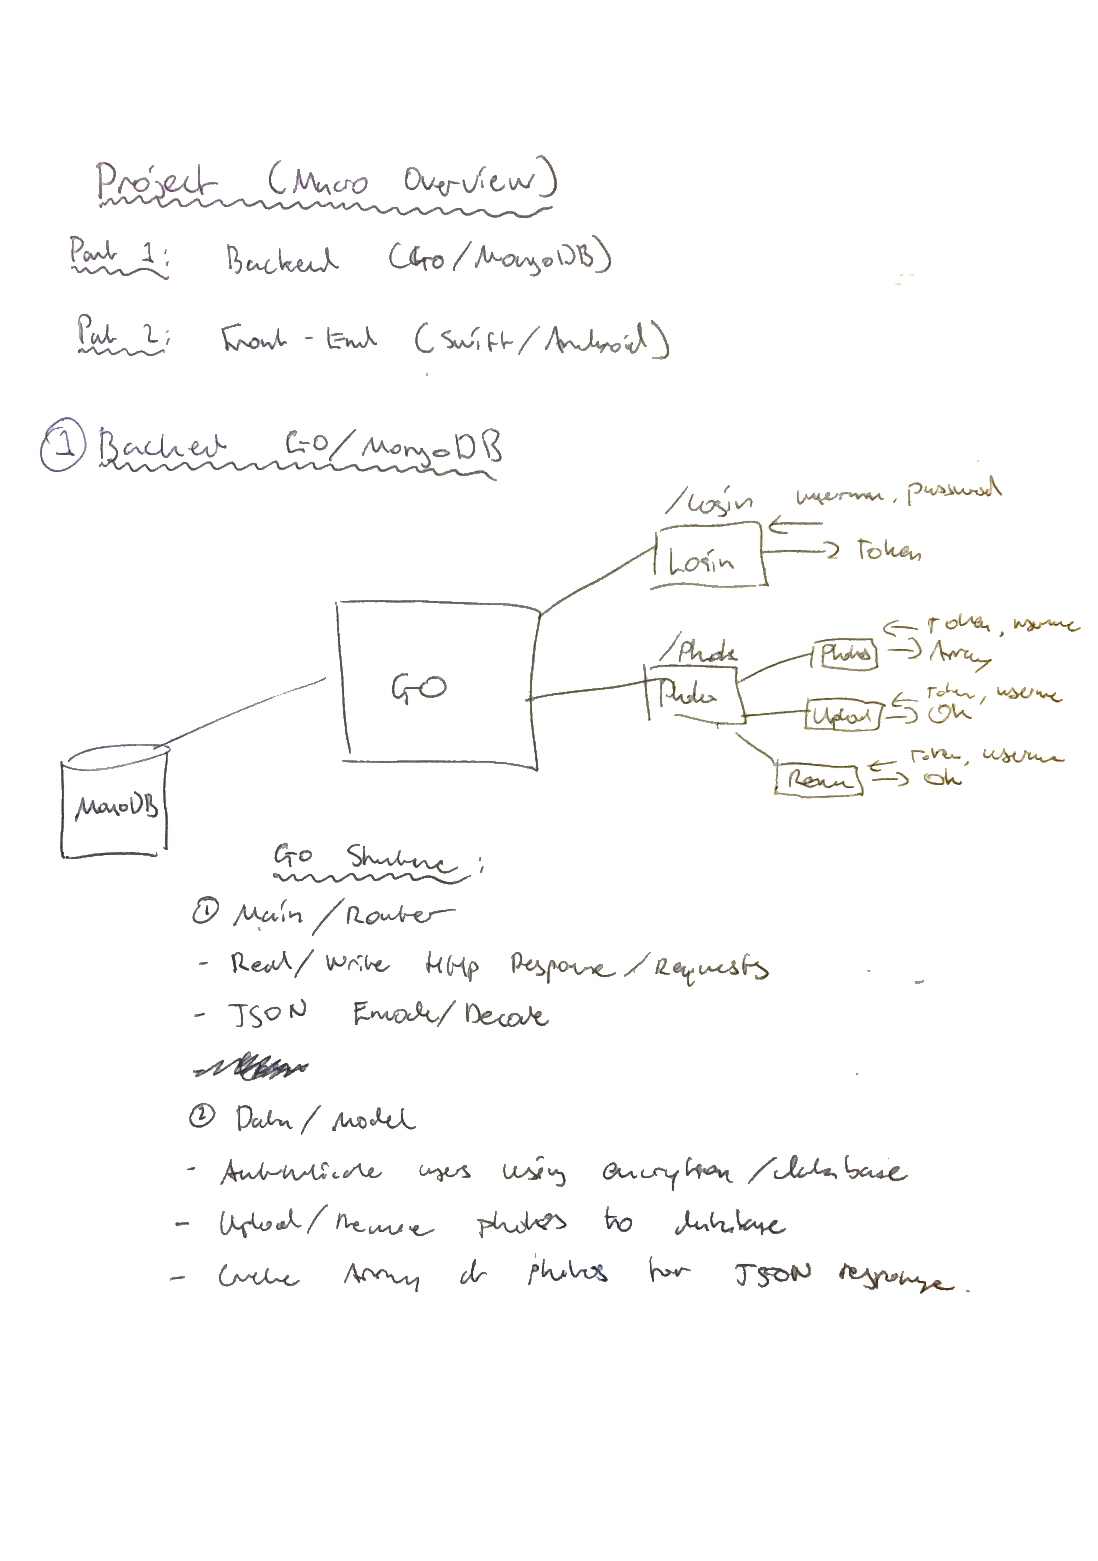 Project (Macro Overview)
Part 1: Backend (Go/MongoDB)
Part 2: Front-End (Swift/Android)
1 Backend GO/MongoDB
/Login username, password
Login Token
GO
/Photos
Photos
Photos Token, username
Array
Upload Token, username
Ok
Remove Token, username
Ok
MongoDB
Go Structure:
① Main/Router
- Read/Write Http Response/Requests
- JSON Encode/Decode
② Data/Model
- Authenticate users using encrytion/database
- Upload/Remove photos to database
- Create Array of photos for JSON response.